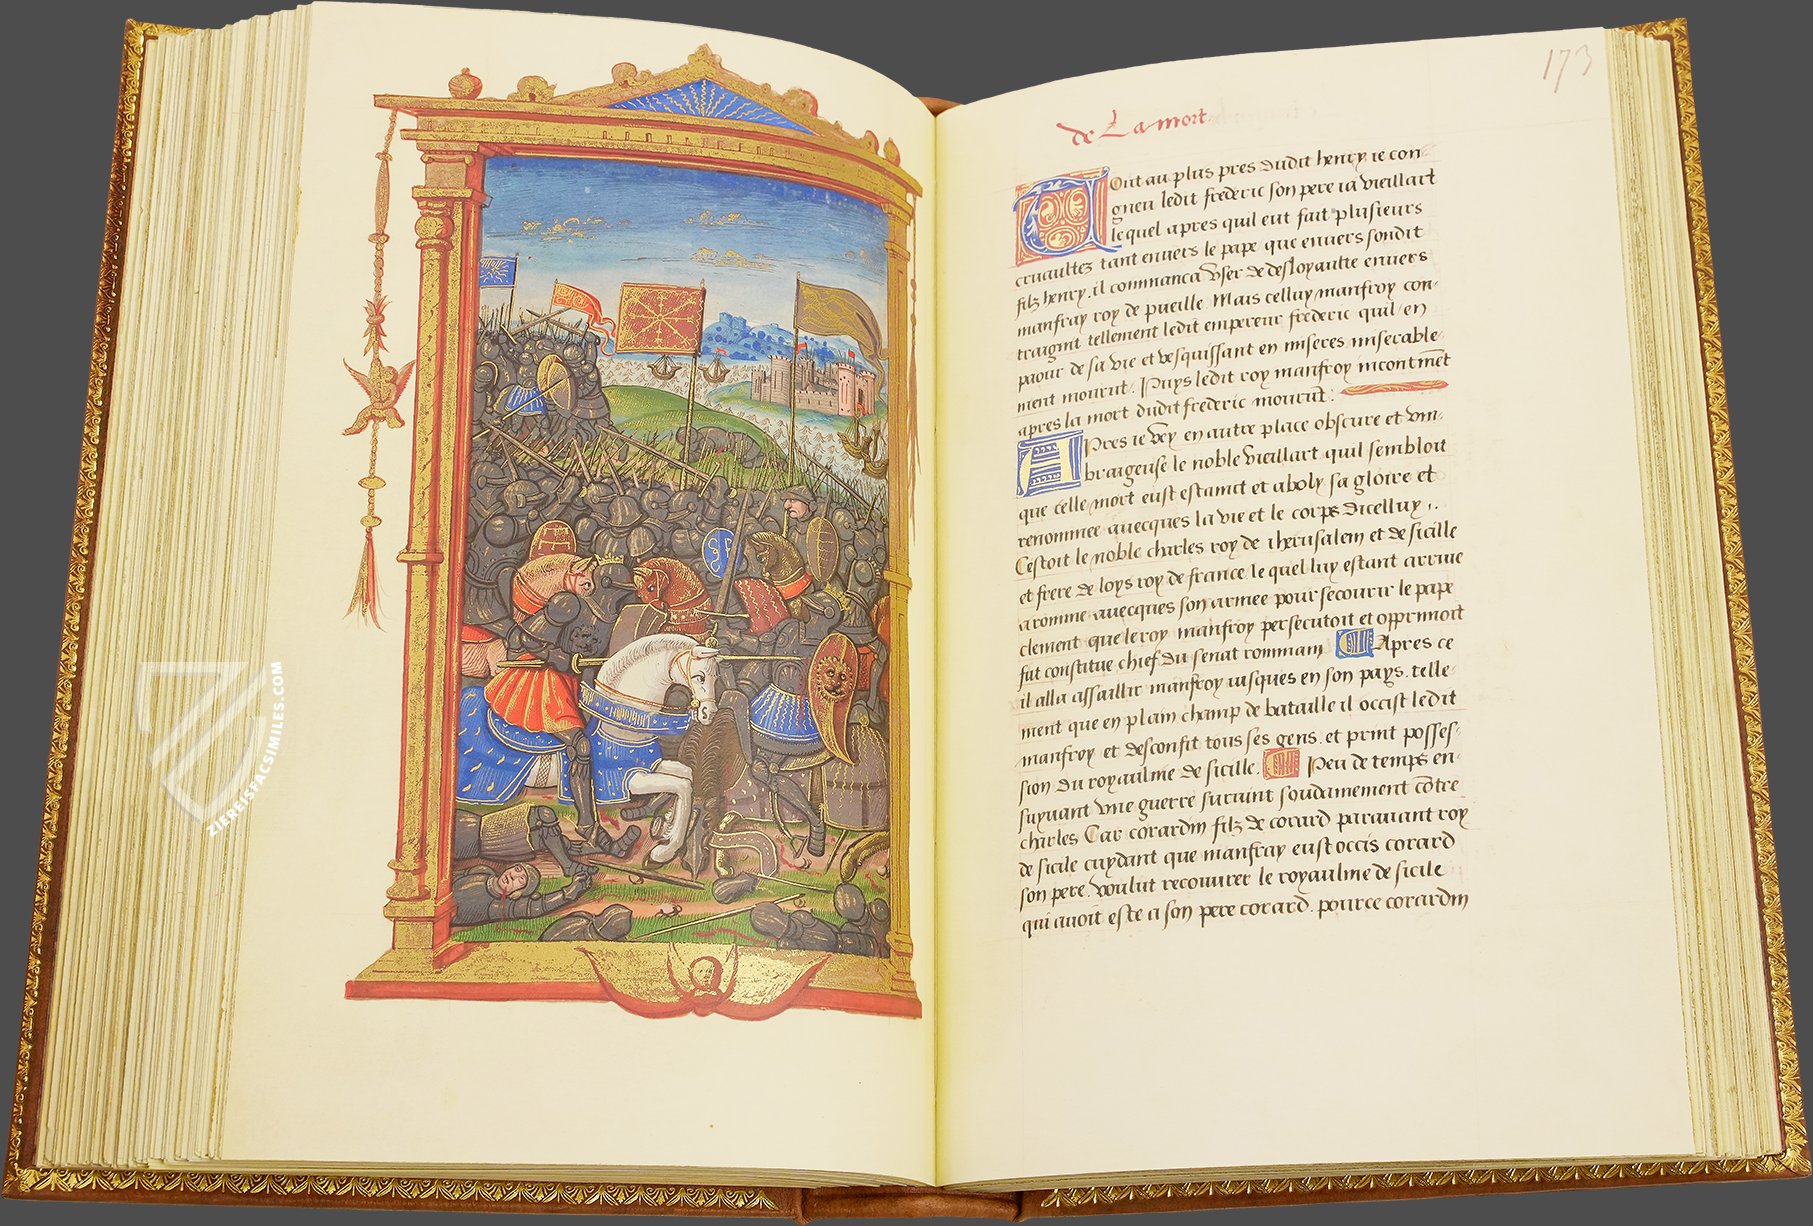 ZIEREISFACSIMILES.COM
173
de La mort
Tout au plus pres dudit henry ie con
gneu ledit frederic son pere ia vieillart
lequel apres quil eut fait plusieurs
cruaultez tant enuers le pape que enuers sondit
filz henry. il commanca vser de desloyaulte enuers
manfray roy de pueille. Mais celluy manfroy con-
traignit tellement ledit empereur frederic quil en
paour de sa vie et vesquissant en miseres miserable
ment mourut. Puys ledit roy manfroy incontinẽt
apres la mort dudit frederic mourut.
Apres ie vey en autre place obscure et vm-
braigeuse le noble vieillart quil sembloit
que celle mort eust estainct et aboly sa gloire et
renommee auecques la vie et le corps dicelluy.
Cestoit le noble charles roy de iherusalem et de sicille
et frere de loys roy de france. le quel luy estant arriue
a romme auecques son armee pour secourir le pape
clement que le roy manfroy persecutoit et opprimoit
fut constitue chief du senat rommain. Apres ce
il alla assaillir manfroy iusques en son pays. telle-
ment que en plain champ de bataille il occist ledit
manfroy et desconfit tous ses gens. et print posses-
sion du royaulme de sicille. Peu de temps en-
suyuant vne guerre suruint soudainement cõtre
charles Car corardin filz de corard parauant roy
de sicile cuydant que manfray eust occis corard
son pere. voulut recouurer le royaulme de sicile
qui auoit este a son pere corard. pource corardin